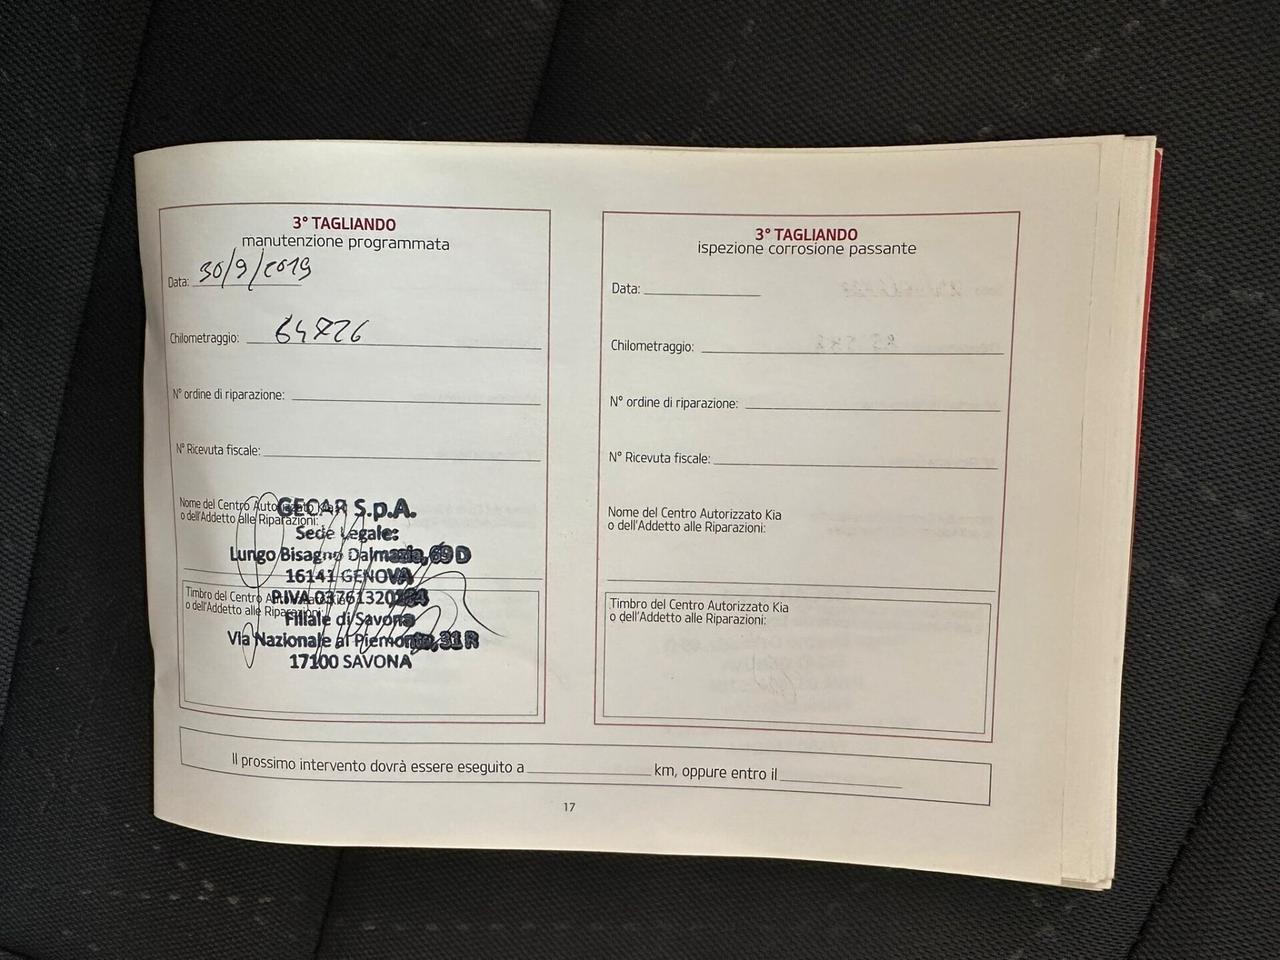 3° TAGLIANDO
manutenzione programmata
Data: 30/9/2019
Chilometraggio: 64826
N° ordine di riparazione:
N° Ricevuta fiscale:
Nome del Centro Autorizzato Kia
o dell'Addetto alle Riparazioni:
GECAR S.p.A.
Sede Legale:
Lungo Bisagno Dalmazia, 69 D
16141 GENOVA
Timbro del Centro Autorizzato
o dell'Addetto alle Riparazioni:
P.IVA
Filiale di Savona
Via Nazionale al Piemonte, 31 R
17100 SAVONA
3° TAGLIANDO
ispezione corrosione passante
Data:
Chilometraggio:
N° ordine di riparazione:
N° Ricevuta fiscale:
Nome del Centro Autorizzato Kia
o dell'Addetto alle Riparazioni:
Timbro del Centro Autorizzato Kia
o dell'Addetto alle Riparazioni:
Il prossimo intervento dovrà essere eseguito a km, oppure entro il
17